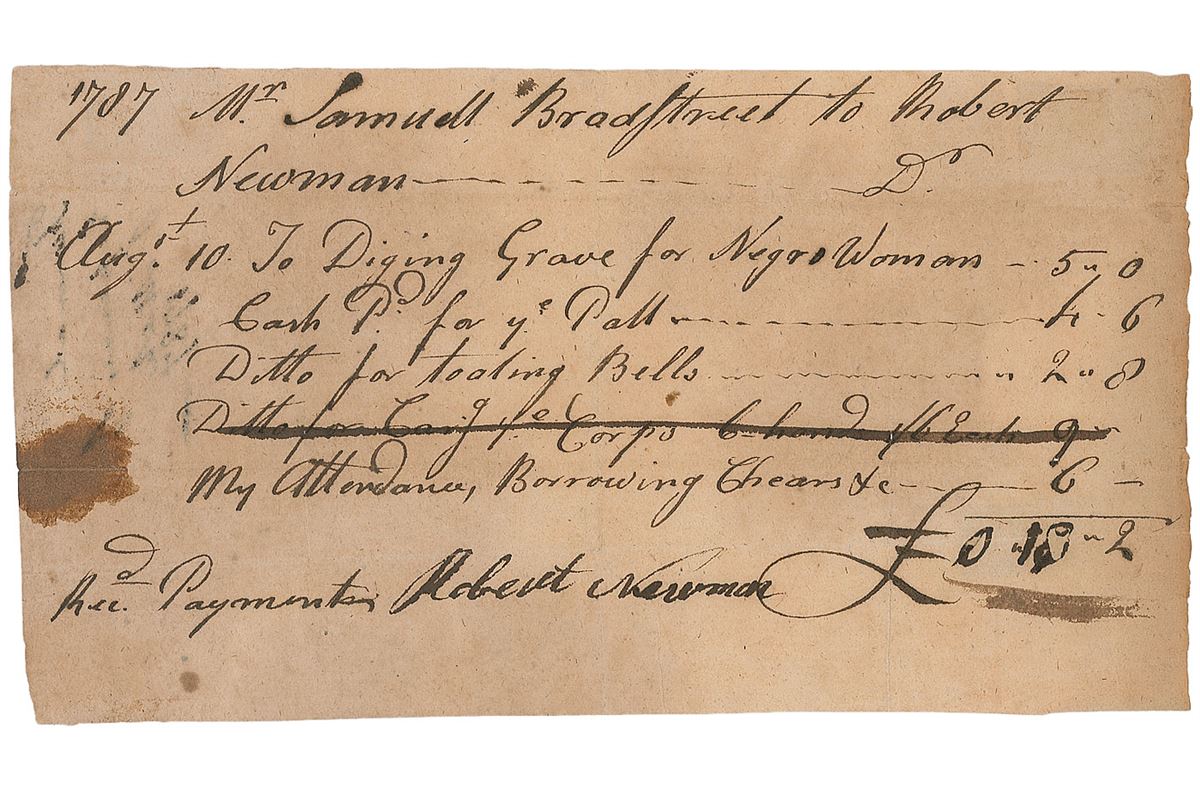 1787 Mr. Samuell Bradstreet to Robert
Newman Dr.
Augst. 10. To Diging Grave for Negro Woman - 5 " 0
Cash Pd. for ye Pall 4 - 6
Ditto for toaling Bells 2 " 8
Ditto for Carg. ye Corps 6 hand 1/6 Each 9 -
My Attendance, Borrowing Chears &c 6 -
£ 0 " 18 " 2
Recd. Payment Robert Newman